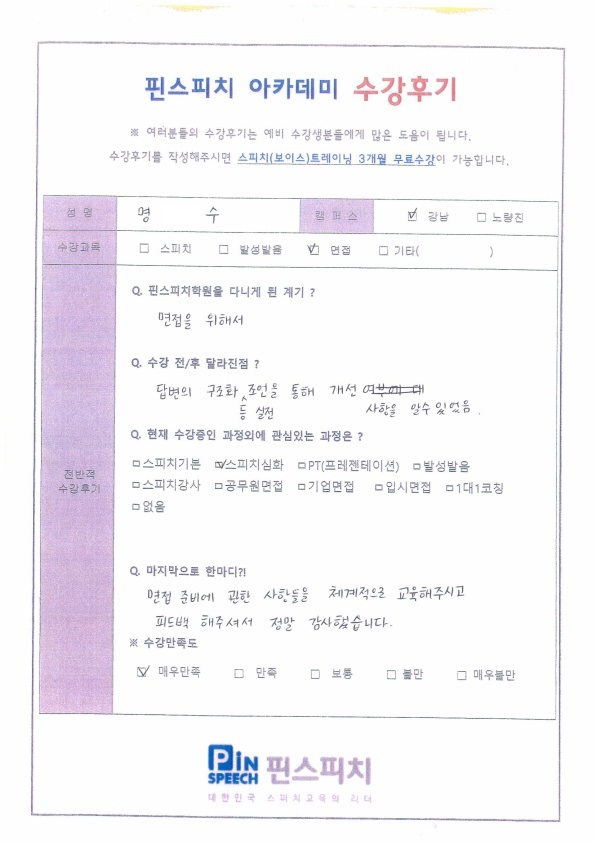 핀스피치 아카데미 수강후기
※ 여러분들의 수강후기는 예비 수강생분들에게 많은 도움이 됩니다.
수강후기를 작성해주시면 스피치(보이스)트레이닝 3개월 무료수강이 가능합니다.
성 명 명 수 캠 퍼 스 ☑ 강남 □ 노량진
수강교육 □ 스피치 □ 발성발음 ☑ 면접 □ 기타( )
전반적
수강후기
Q. 핀스피치학원을 다니게 된 계기 ?
면접을 위해서
Q. 수강 전/후 달라진점 ?
답변의 구조화 조언을 통해 개선
등 실전 사항을 알수 있었음.
Q. 현재 수강중인 과정외에 관심있는 과정은 ?
□스피치기본 ☑스피치심화 □PT(프레젠테이션) □발성발음
□스피치강사 □공무원면접 □기업면접 □입시면접 □1대1코칭
□없음
Q. 마지막으로 한마디?!
면접 준비에 관한 사항들을 체계적으로 교육해주시고
피드백 해주셔서 정말 감사했습니다.
※ 수강만족도
☑ 매우만족 □ 만족 □ 보통 □ 불만 □ 매우불만
PiN
SPEECH 핀스피치
대한민국 스피치교육의 리더